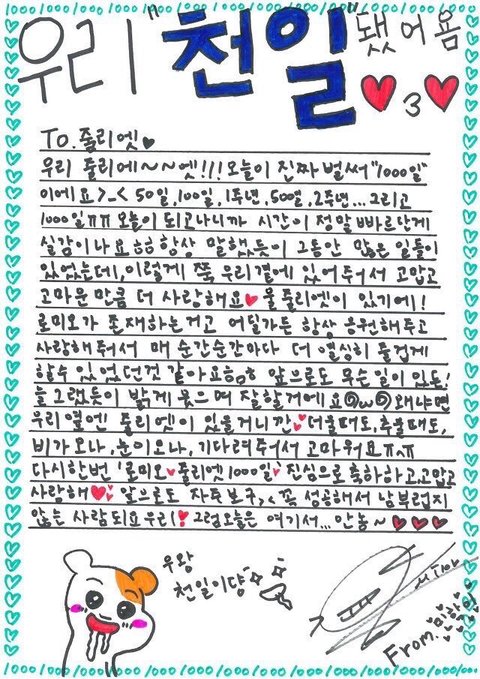 우리 "천일" 됐어욤
♥3♥
To. 줄리엣♥
우리 줄리에~~엣!!! 오늘이 진짜 벌써 "1000일"
이에요 >_< 50일, 100일, 1주년, 500일, 2주년... 그리고
1000일ㅠㅠ 오늘이 되고나니까 시간이 정말 빠르단게
실감이나요ㅎㅎ 항상 말했듯이 그동안 많은 일들이
있었는데, 이렇게 쭉 우리곁에 있어주어서 고맙고
고마운만큼 더 사랑해요♥ 울 줄리엣이 있기에!
로미오가 존재하는거고 어딜가든 항상 응원해주고
사랑해줘서 매 순간순간마다 더 열심히 즐겁게
할수 있었던것 같아요ㅎㅎ 앞으로도 무슨일이 있든!
늘 그랬듯이 밝게 웃으며 잘할거에요 왜냐면
우리 옆엔 줄리엣이 있을거니깐♥ 더울때도, 추울때도,
비가오나, 눈이오나, 기다려주어서 고마워요ㅠ_ㅠ
다시한번 '로미오♥줄리엣 1000일♥ 진심으로 축하하고, 고맙고
사랑해♥ 앞으로도 자주보구, 꼭 성공해서 남부럽지
않는 사람되요 우리! 그럼오늘은 여기서... 안농~ ♥♥♥
우왕
천일이당
From.